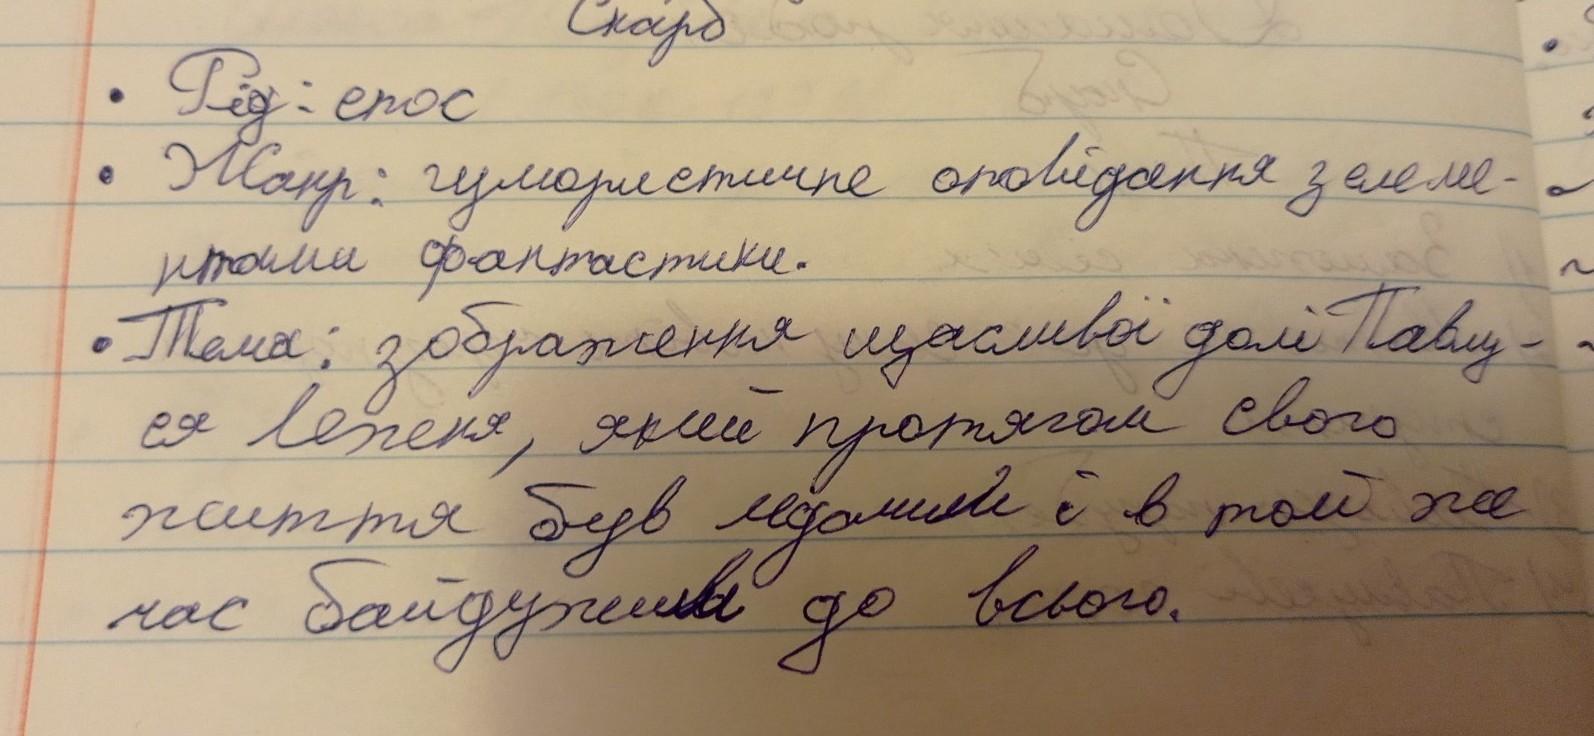 Скарб
• Рід: епос
• Жанр: гумористичне оповідання з елеме-
нтами фантастики.
• Тема: зображення щасливої долі Павлу-
ся Леженя, який протягом свого
життя був ледачим і в той же
час байдужим до всього.